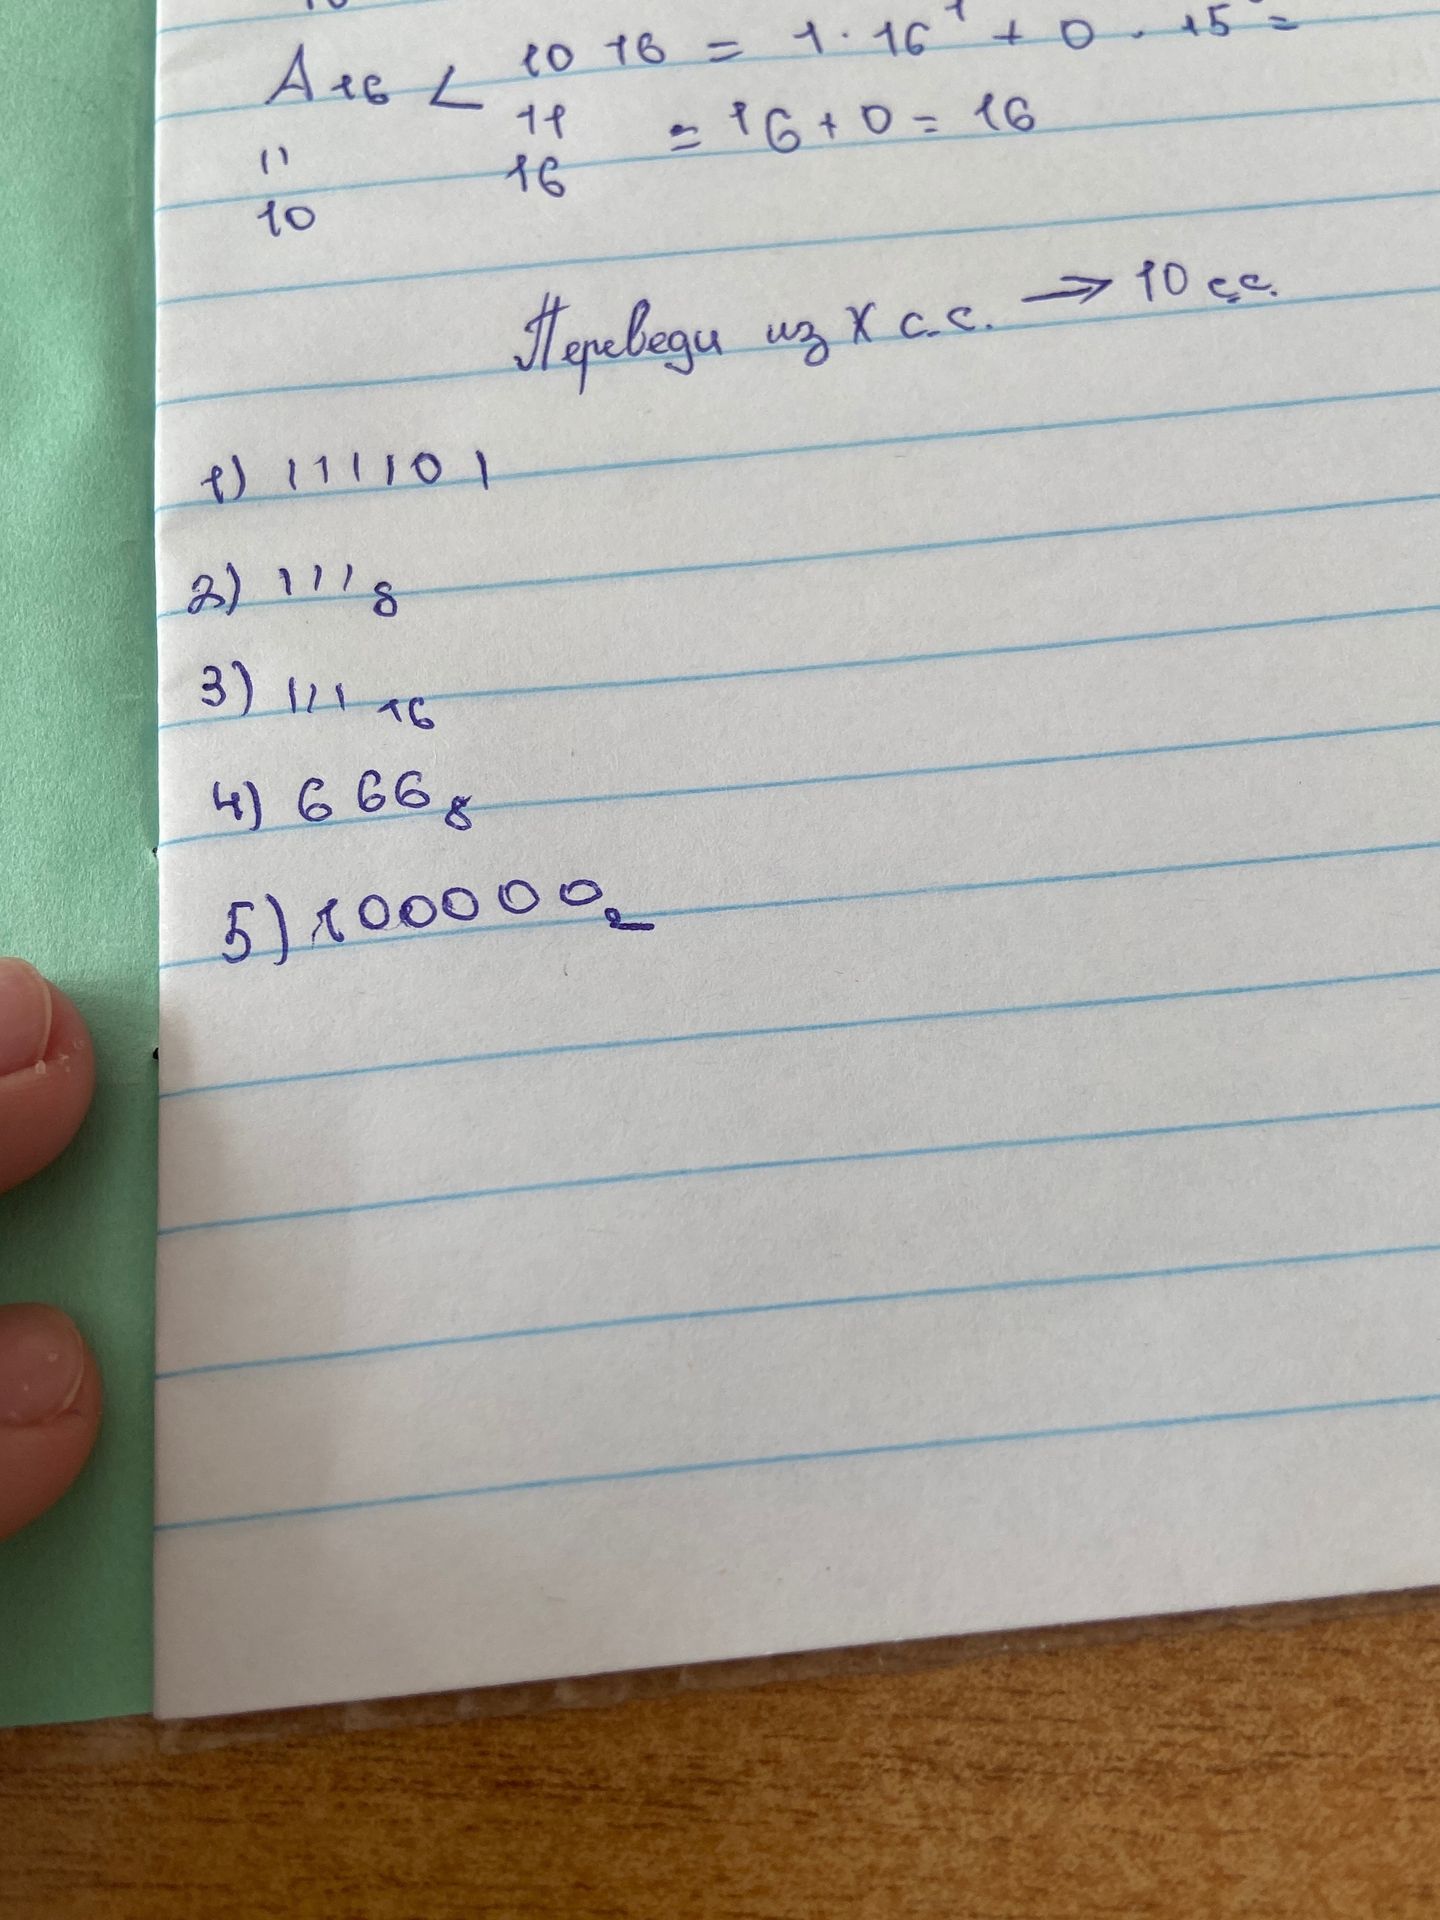 A16 < 10 16 = 1 · 16¹ + 0 · 15 =
11 = 16 + 0 = 16
10 16
Переведи из X с.с. → 10 с.с.
1) 111101
2) 111 8
3) 111 16
4) 666 8
5) 100000 2